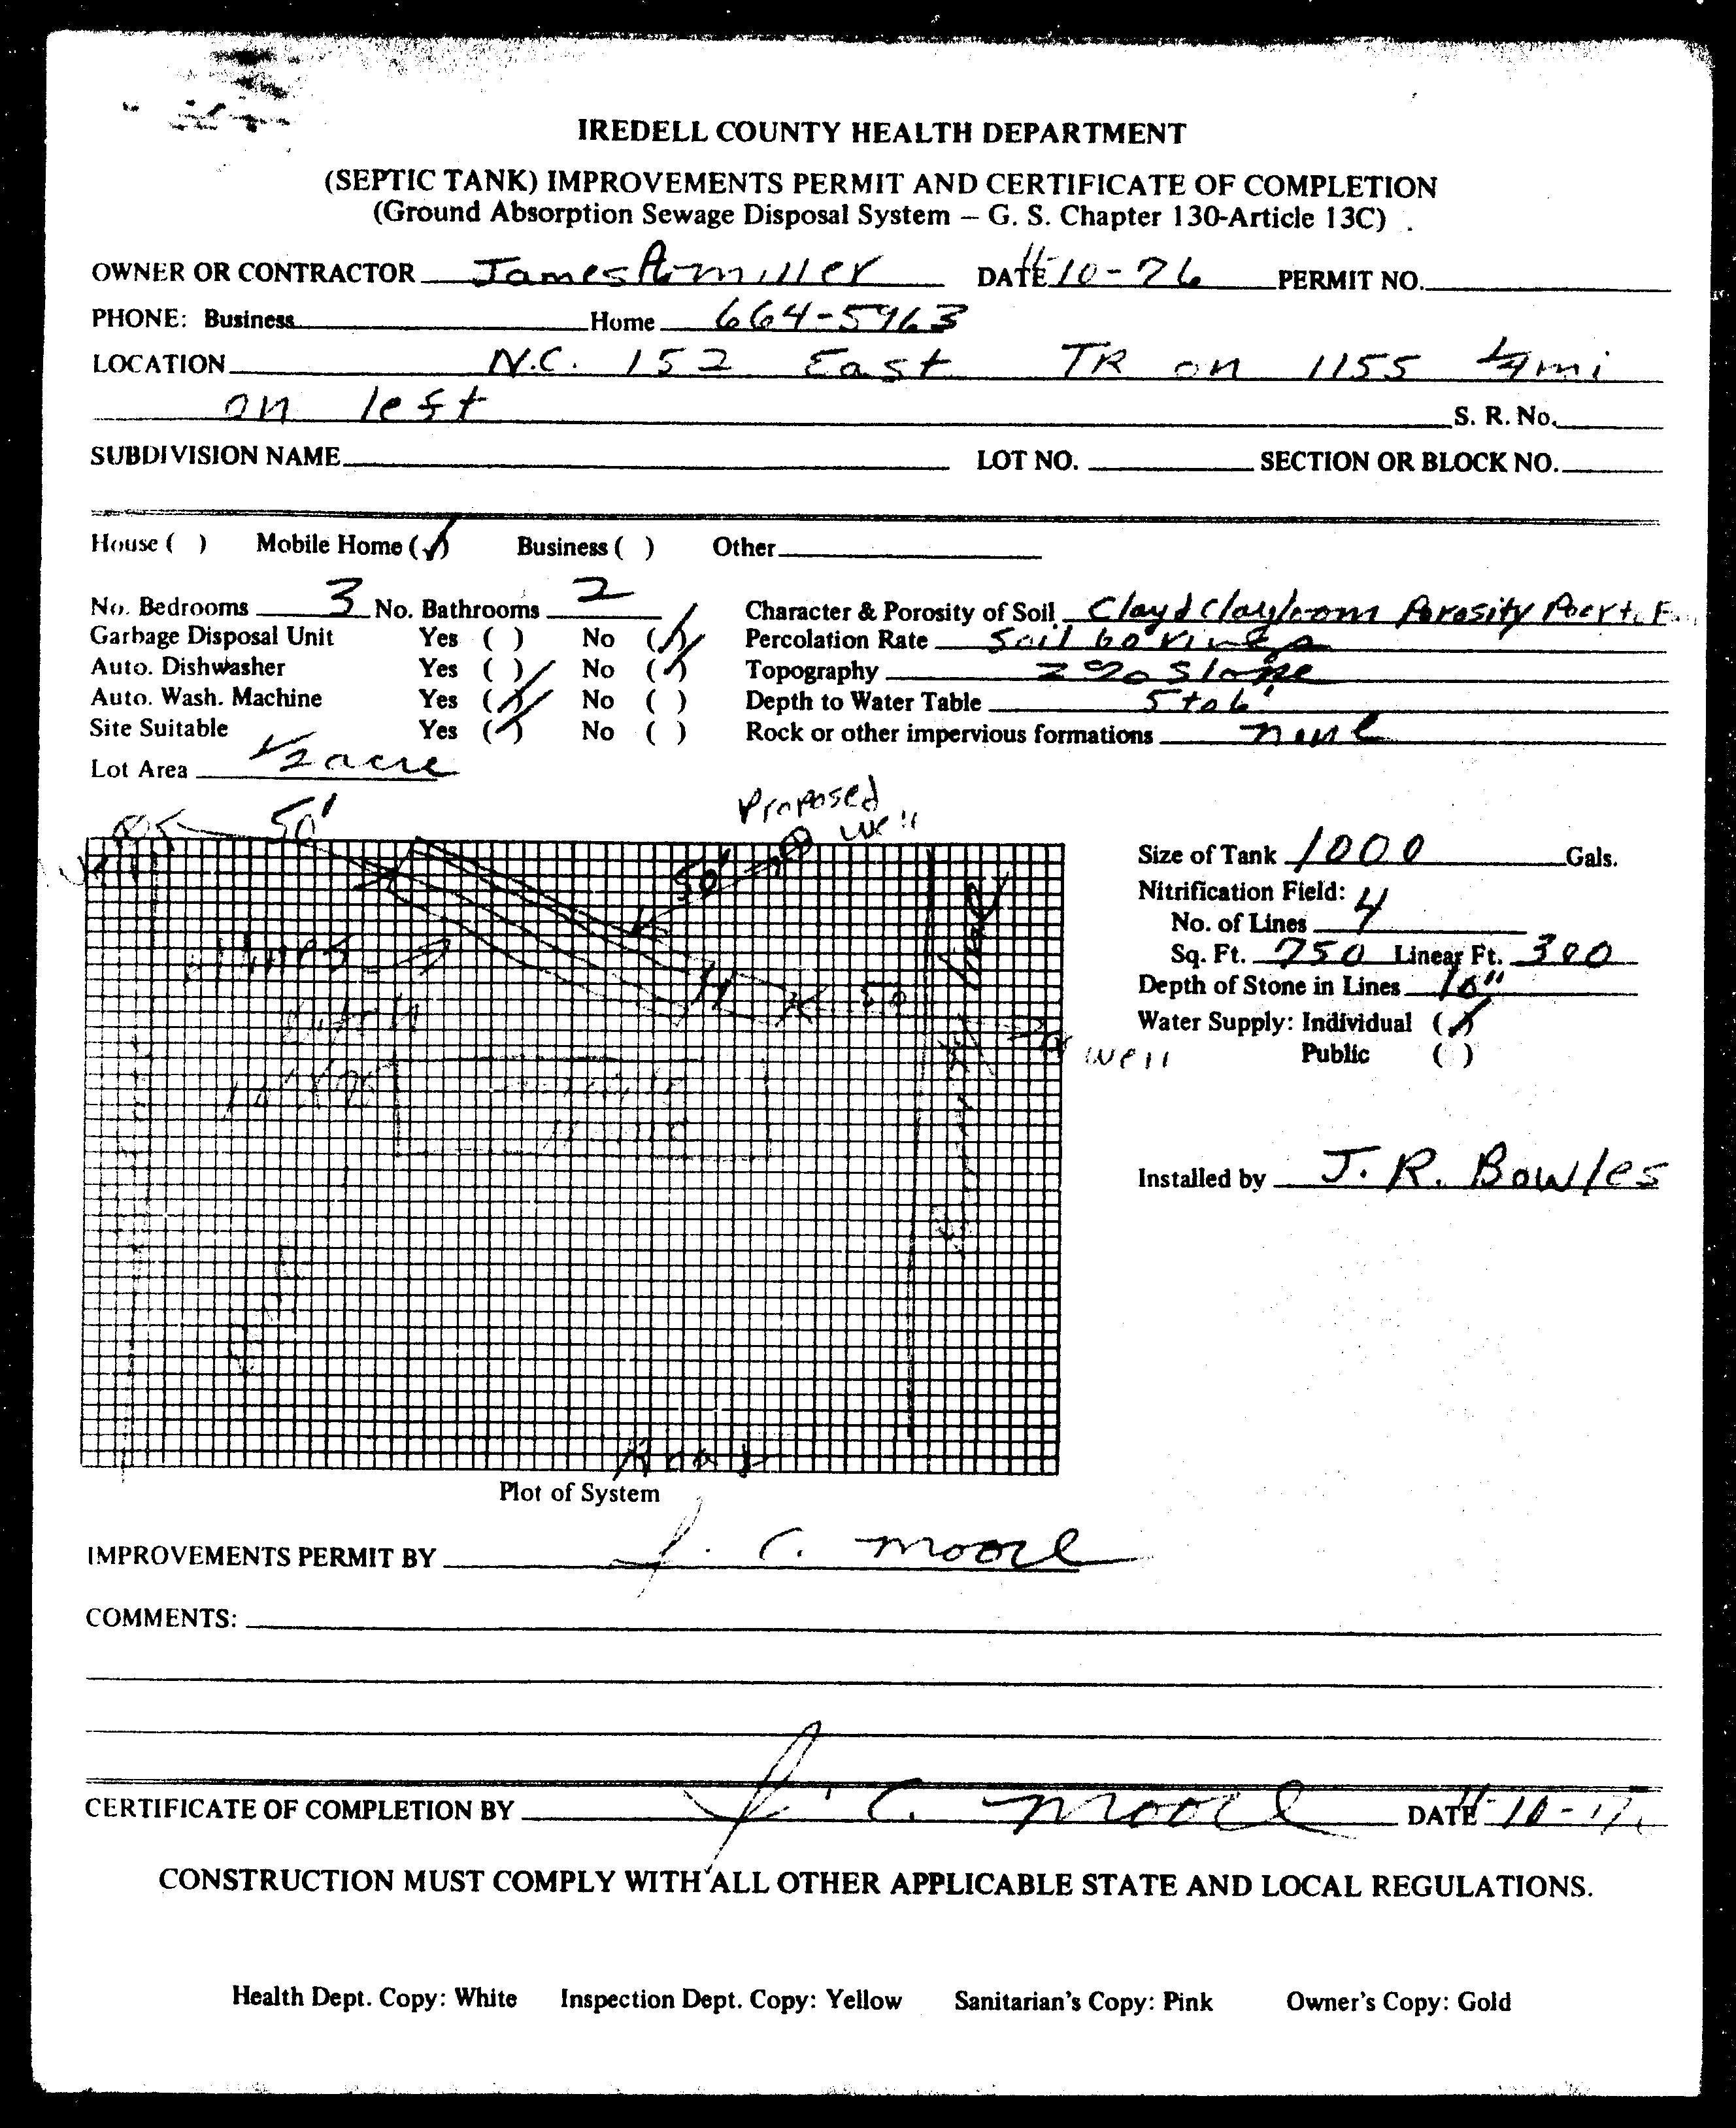 IREDELL COUNTY HEALTH DEPARTMENT
(SEPTIC TANK) IMPROVEMENTS PERMIT AND CERTIFICATE OF COMPLETION
(Ground Absorption Sewage Disposal System – G. S. Chapter 130-Article 13C)
OWNER OR CONTRACTOR James A. Miller DATE 11-10-76 PERMIT NO.
PHONE: Business Home 664-5963
LOCATION N.C. 152 East TR on 1155 1/4 mi
on left S. R. No.
SUBDIVISION NAME LOT NO. SECTION OR BLOCK NO.
House ( ) Mobile Home (✓) Business ( ) Other
No. Bedrooms 3 No. Bathrooms 2 Character & Porosity of Soil Clay & Clay loam Porosity Poor to
Garbage Disposal Unit Yes ( ) No (✓) Percolation Rate Soil borings
Auto. Dishwasher Yes ( ) No (✓) Topography 2% Slope
Auto. Wash. Machine Yes (✓) No ( ) Depth to Water Table 5 to 6'
Site Suitable Yes (✓) No ( ) Rock or other impervious formations none
Lot Area 1/2 acre
Proposed
50' well
Well
50'
Size of Tank 1000 Gals.
Nitrification Field:
No. of Lines 4
Sq. Ft. 750 Linear Ft. 300
lines
50
Depth of Stone in Lines
Water Supply: Individual (✓)
well
Public ( )
Installed by J. R. Bowles
Plot of System
IMPROVEMENTS PERMIT BY J. C. Moore
COMMENTS:
CERTIFICATE OF COMPLETION BY J. C. Moore DATE 11-10-
CONSTRUCTION MUST COMPLY WITH ALL OTHER APPLICABLE STATE AND LOCAL REGULATIONS.
Health Dept. Copy: White Inspection Dept. Copy: Yellow Sanitarian's Copy: Pink Owner's Copy: Gold